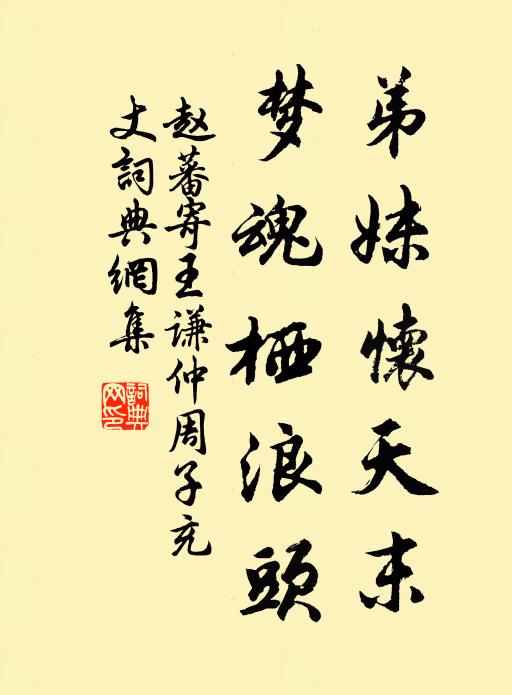 弟妹懷天末
梦魂栖浪頭
赵蕃寄王谦仲周子充
丈詞典網集
詞典网印